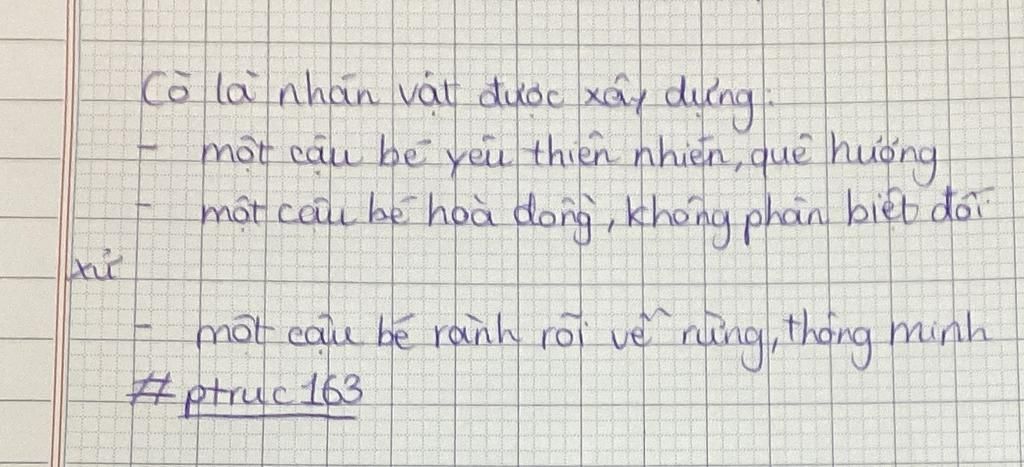 Cò là nhân vật được xây dựng:
- một cậu bé yêu thiên nhiên, quê hương
- một cậu bé hoà đồng, không phân biệt đối
xử
- một cậu bé rành rõi về rừng, thông minh
# ptruc163